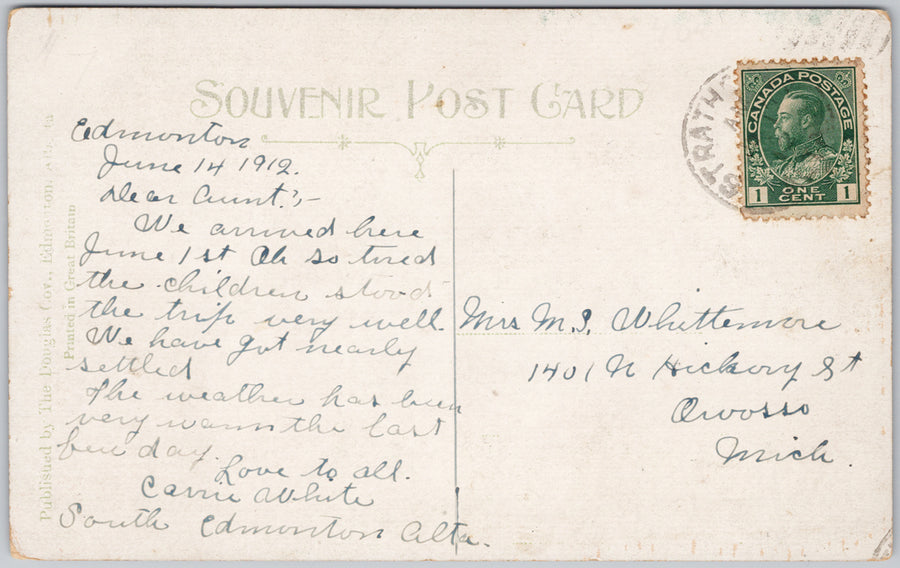 SOUVENIR POST CARD
Edmonton
June 14 1912.
Dear Aunt:-
We arrived here
June 1st Oh so tired
the children stood
the trip very well.
We have got nearly
settled
The weather has been
very warm the last
few day.
Love to all.
Carrie White
South Edmonton Alta.
Mrs M. S. Whittemore
1401 N Hickory St
Owosso
Mich.
CANADA POSTAGE
1 ONE CENT 1
STRATH
Published by The Douglas Co., Edmonton, Alta
Printed in Great Britain